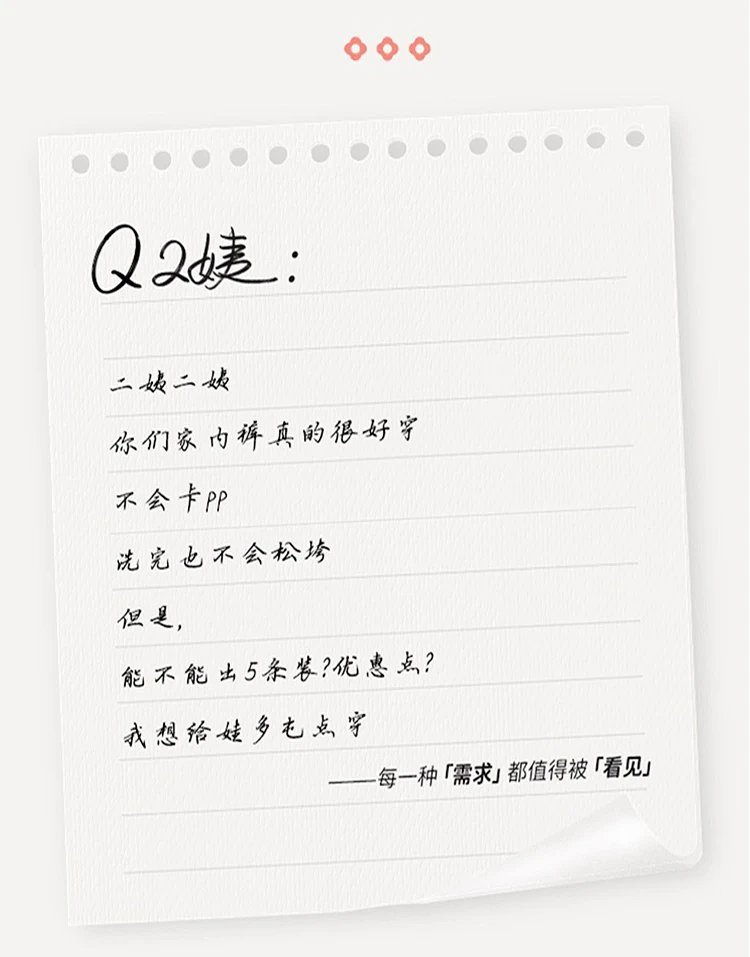 Q2姨：
二姨二姨
你们家内裤真的很好穿
不会卡pp
洗完也不会松垮
但是,
能不能出5条装?优惠点?
我想给娃多屯点穿
——每一种「需求」都值得被「看见」